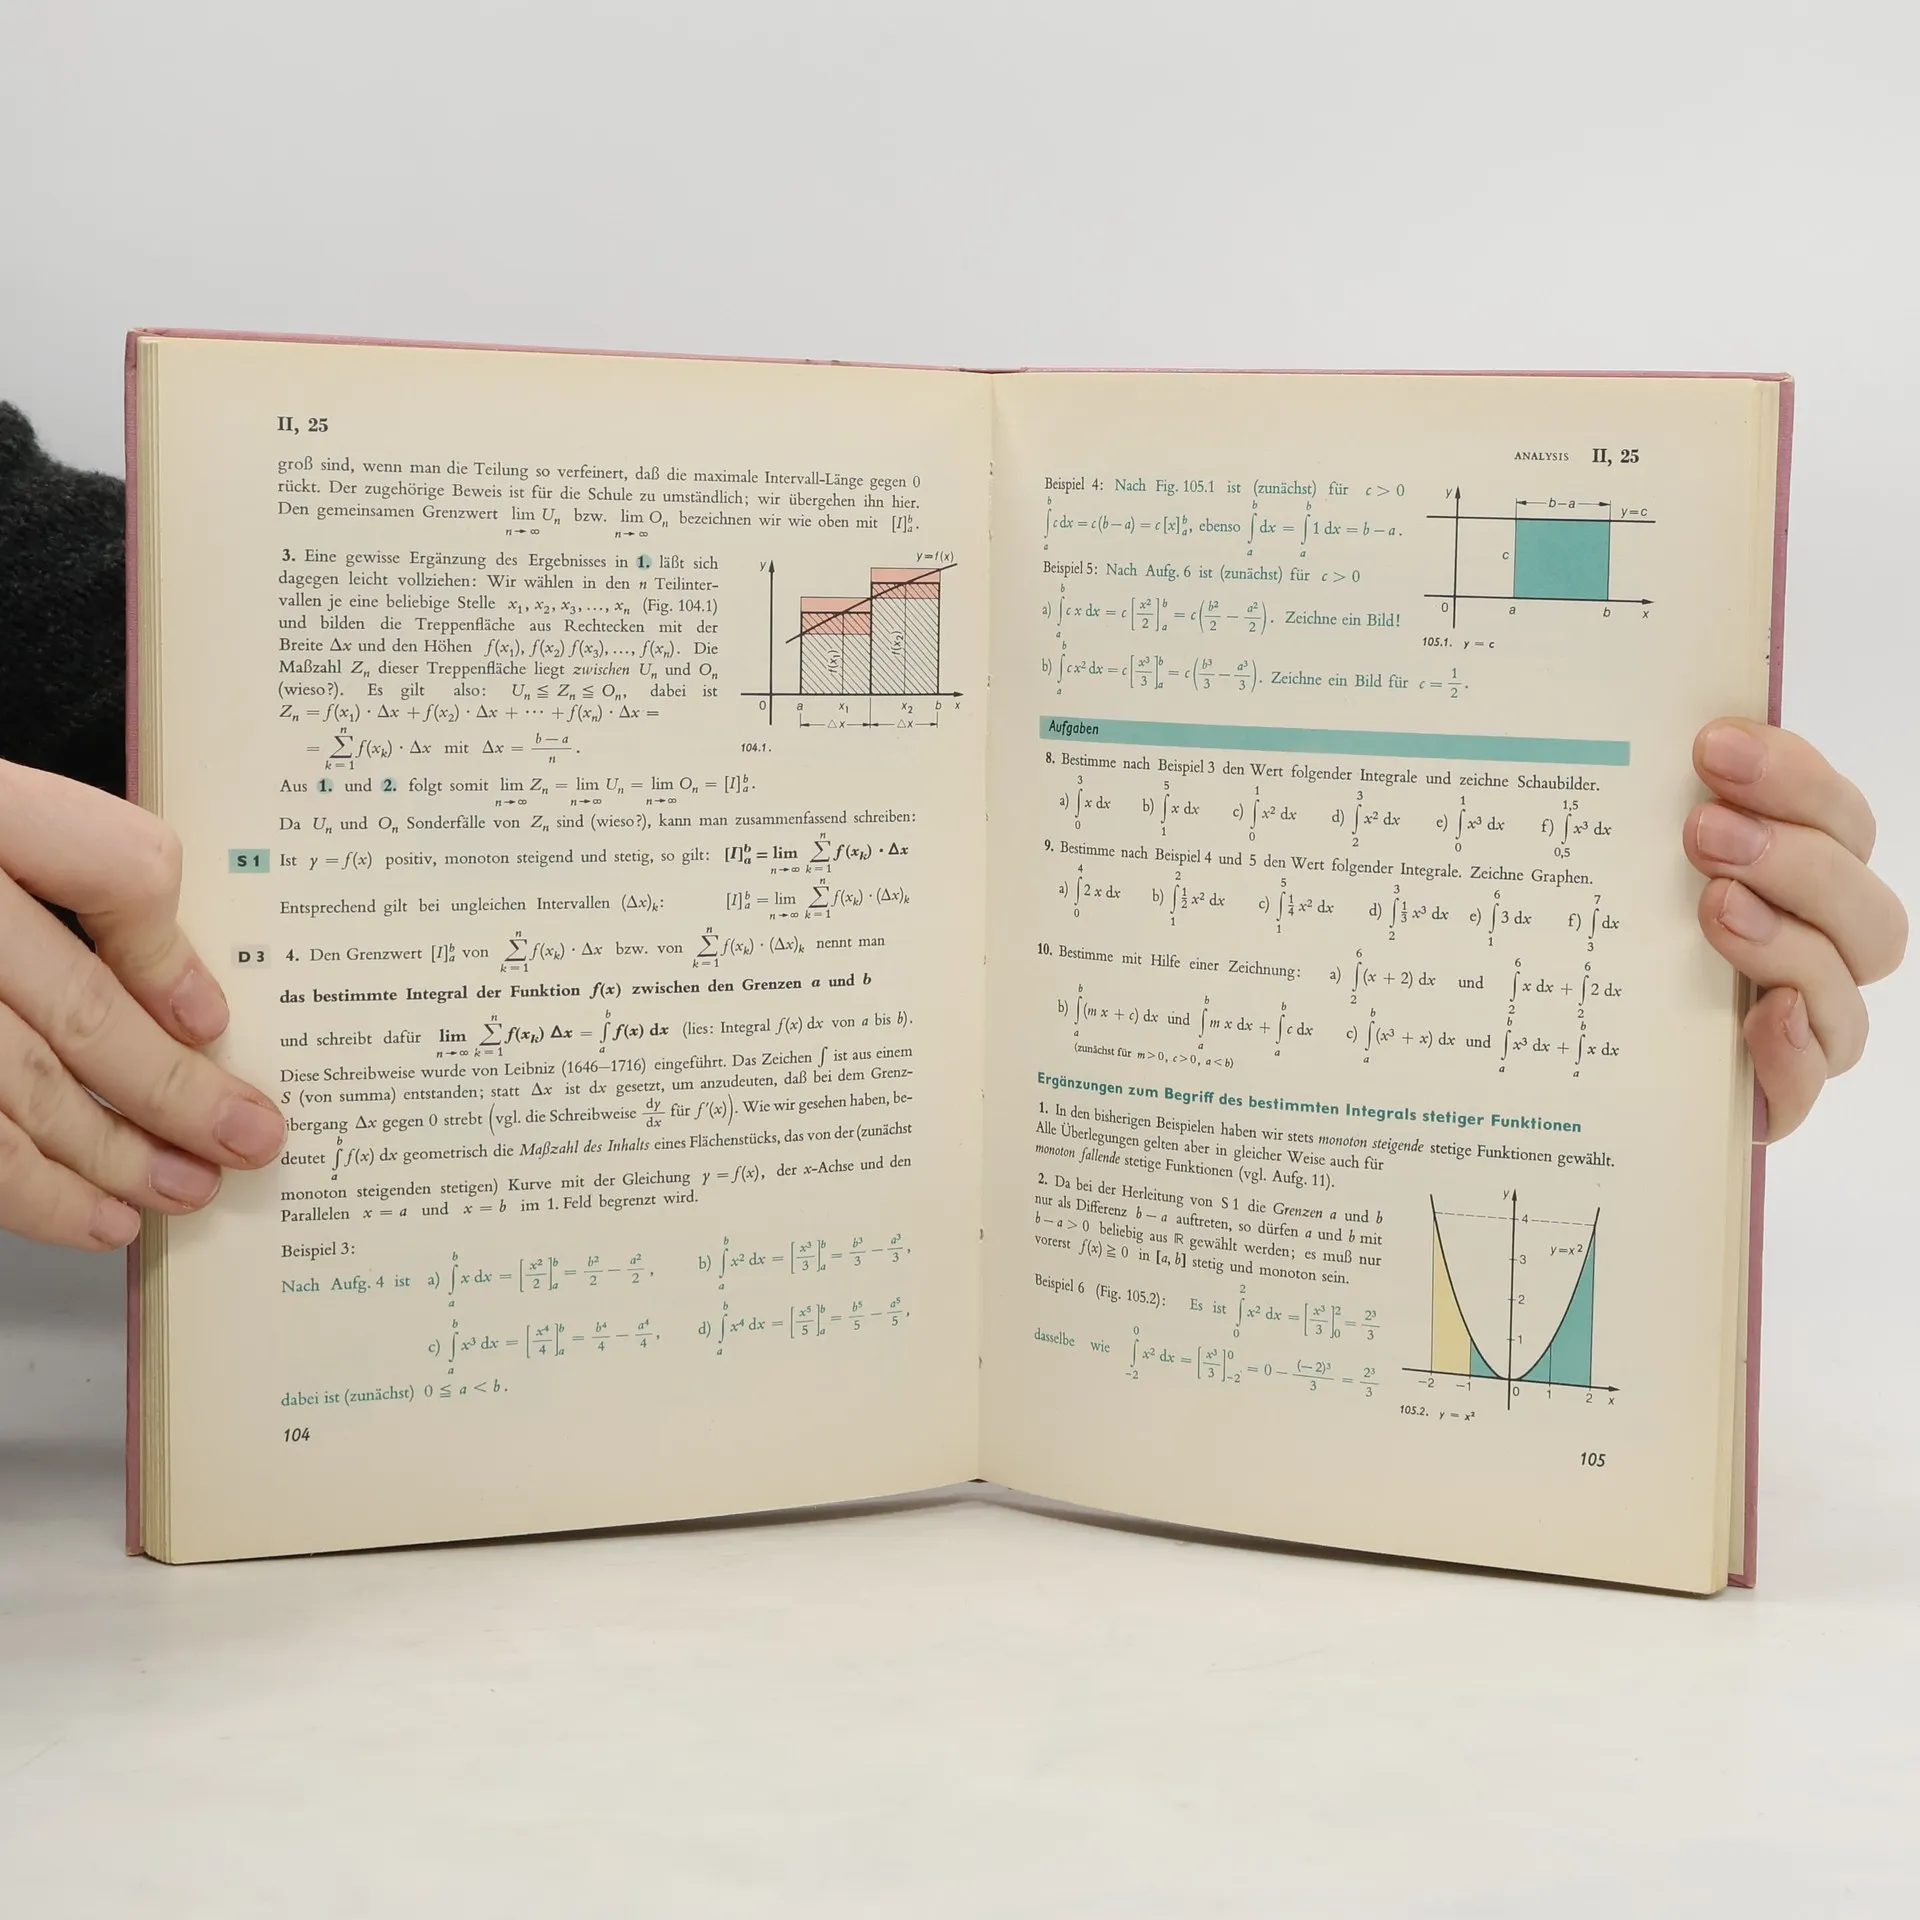 II, 25
groß sind, wenn man die Teilung so verfeinert, daß die maximale Intervall-Länge gegen 0
rückt. Der zugehörige Beweis ist für die Schule zu umständlich; wir übergehen ihn hier.
Den gemeinsamen Grenzwert lim Uₙ bzw. lim Oₙ bezeichnen wir wie oben mit [I]ₐᵇ.
n→∞ n→∞
3. Eine gewisse Ergänzung des Ergebnisses in 1. läßt sich
dagegen leicht vollziehen: Wir wählen in den n Teilinter-
vallen je eine beliebige Stelle x₁, x₂, x₃, ..., xₙ (Fig. 104.1)
und bilden die Treppenfläche aus Rechtecken mit der
Breite Δx und den Höhen f(x₁), f(x₂) f(x₃), ..., f(xₙ). Die
Maßzahl Zₙ dieser Treppenfläche liegt zwischen Uₙ und Oₙ
(wieso?). Es gilt also: Uₙ ≦ Zₙ ≦ Oₙ, dabei ist
Zₙ = f(x₁) · Δx + f(x₂) · Δx + ··· + f(xₙ) · Δx =
= ∑ₖ₌₁ⁿ f(xₖ) · Δx mit Δx = (b−a)/n.
y y=f(x)
f(x₁) f(x₂)
0 a x₁ x₂ b x
Δx Δx
104.1.
Aus 1. und 2. folgt somit lim Zₙ = lim Uₙ = lim Oₙ = [I]ₐᵇ.
n→∞ n→∞ n→∞
Da Uₙ und Oₙ Sonderfälle von Zₙ sind (wieso?), kann man zusammenfassend schreiben:
S 1 Ist y = f(x) positiv, monoton steigend und stetig, so gilt: [I]ₐᵇ = lim ∑ₖ₌₁ⁿ f(xₖ) · Δx
n→∞
Entsprechend gilt bei ungleichen Intervallen (Δx)ₖ: [I]ₐᵇ = lim ∑ₖ₌₁ⁿ f(xₖ) · (Δx)ₖ
n→∞
D 3 4. Den Grenzwert [I]ₐᵇ von ∑ₖ₌₁ⁿ f(xₖ) · Δx bzw. von ∑ₖ₌₁ⁿ f(xₖ) · (Δx)ₖ nennt man
das bestimmte Integral der Funktion f(x) zwischen den Grenzen a und b
und schreibt dafür lim ∑ₖ₌₁ⁿ f(xₖ) Δx = ∫ₐᵇ f(x) dx (lies: Integral f(x) dx von a bis b).
n→∞
Diese Schreibweise wurde von Leibniz (1646—1716) eingeführt. Das Zeichen ∫ ist aus einem
S (von summa) entstanden; statt Δx ist dx gesetzt, um anzudeuten, daß bei dem Grenz-
übergang Δx gegen 0 strebt (vgl. die Schreibweise dy/dx für f′(x)). Wie wir gesehen haben, be-
deutet ∫ₐᵇ f(x) dx geometrisch die Maßzahl des Inhalts eines Flächenstücks, das von der (zunächst
monoton steigenden stetigen) Kurve mit der Gleichung y = f(x), der x-Achse und den
Parallelen x = a und x = b im 1. Feld begrenzt wird.
Beispiel 3:
Nach Aufg. 4 ist a) ∫ₐᵇ x dx = [x²/2]ₐᵇ = b²/2 − a²/2, b) ∫ₐᵇ x² dx = [x³/3]ₐᵇ = b³/3 − a³/3,
c) ∫ₐᵇ x³ dx = [x⁴/4]ₐᵇ = b⁴/4 − a⁴/4, d) ∫ₐᵇ x⁴ dx = [x⁵/5]ₐᵇ = b⁵/5 − a⁵/5,
dabei ist (zunächst) 0 ≦ a < b.
104
ANALYSIS II, 25
Beispiel 4: Nach Fig. 105.1 ist (zunächst) für c > 0
∫ₐᵇ c dx = c(b−a) = c[x]ₐᵇ, ebenso ∫ₐᵇ dx = ∫ₐᵇ 1 dx = b−a.
Beispiel 5: Nach Aufg. 6 ist (zunächst) für c > 0
a) ∫ₐᵇ c x dx = c[x²/2]ₐᵇ = c(b²/2 − a²/2). Zeichne ein Bild!
b) ∫ₐᵇ c x² dx = c[x³/3]ₐᵇ = c(b³/3 − a³/3). Zeichne ein Bild für c = 1/2.
y b−a y=c
c
0 a b x
105.1. y = c
Aufgaben
8. Bestimme nach Beispiel 3 den Wert folgender Integrale und zeichne Schaubilder.
a) ∫₀³ x dx b) ∫₁⁵ x dx c) ∫₀¹ x² dx d) ∫₂³ x² dx e) ∫₀¹ x³ dx f) ∫ 0,5 1,5 x³ dx
9. Bestimme nach Beispiel 4 und 5 den Wert folgender Integrale. Zeichne Graphen.
a) ∫₀⁴ 2 x dx b) ∫₁² 1/2 x² dx c) ∫₁⁵ 1/4 x² dx d) ∫₂³ 1/3 x³ dx e) ∫₁⁶ 3 dx f) ∫₃⁷ dx
10. Bestimme mit Hilfe einer Zeichnung: a) ∫₂⁶ (x + 2) dx und ∫₂⁶ x dx + ∫₂⁶ 2 dx
b) ∫ₐᵇ (m x + c) dx und ∫ₐᵇ m x dx + ∫ₐᵇ c dx c) ∫ₐᵇ (x³ + x) dx und ∫ₐᵇ x³ dx + ∫ₐᵇ x dx
(zunächst für m>0, c>0, a<b)
Ergänzungen zum Begriff des bestimmten Integrals stetiger Funktionen
1. In den bisherigen Beispielen haben wir stets monoton steigende stetige Funktionen gewählt.
Alle Überlegungen gelten aber in gleicher Weise auch für
monoton fallende stetige Funktionen (vgl. Aufg. 11).
2. Da bei der Herleitung von S 1 die Grenzen a und b
nur als Differenz b − a auftreten, so dürfen a und b mit
b − a > 0 beliebig aus ℝ gewählt werden; es muß nur
vorerst f(x) ≧ 0 in [a, b] stetig und monoton sein.
Beispiel 6 (Fig. 105.2): Es ist ∫₀² x² dx = [x³/3]₀² = 2³/3
dasselbe wie ∫₋₂⁰ x² dx = [x³/3]₋₂⁰ = 0 − (−2)³/3 = 2³/3
y
4
3 y=x²
2
1
−2 −1 0 1 2 x
105.2. y = x²
105